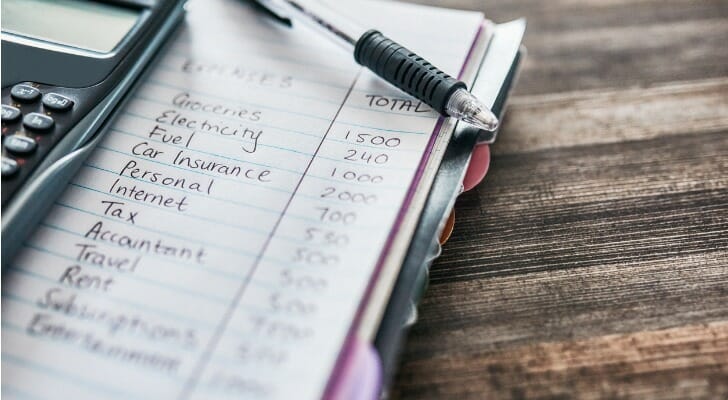 EXPENSES
TOTAL
Groceries 1500
Electricity 240
Fuel 1000
Car Insurance 2000
Personal 700
Internet 530
Tax 500
Accountant 500
Travel 500
Rent
Subscriptions
Entertainment